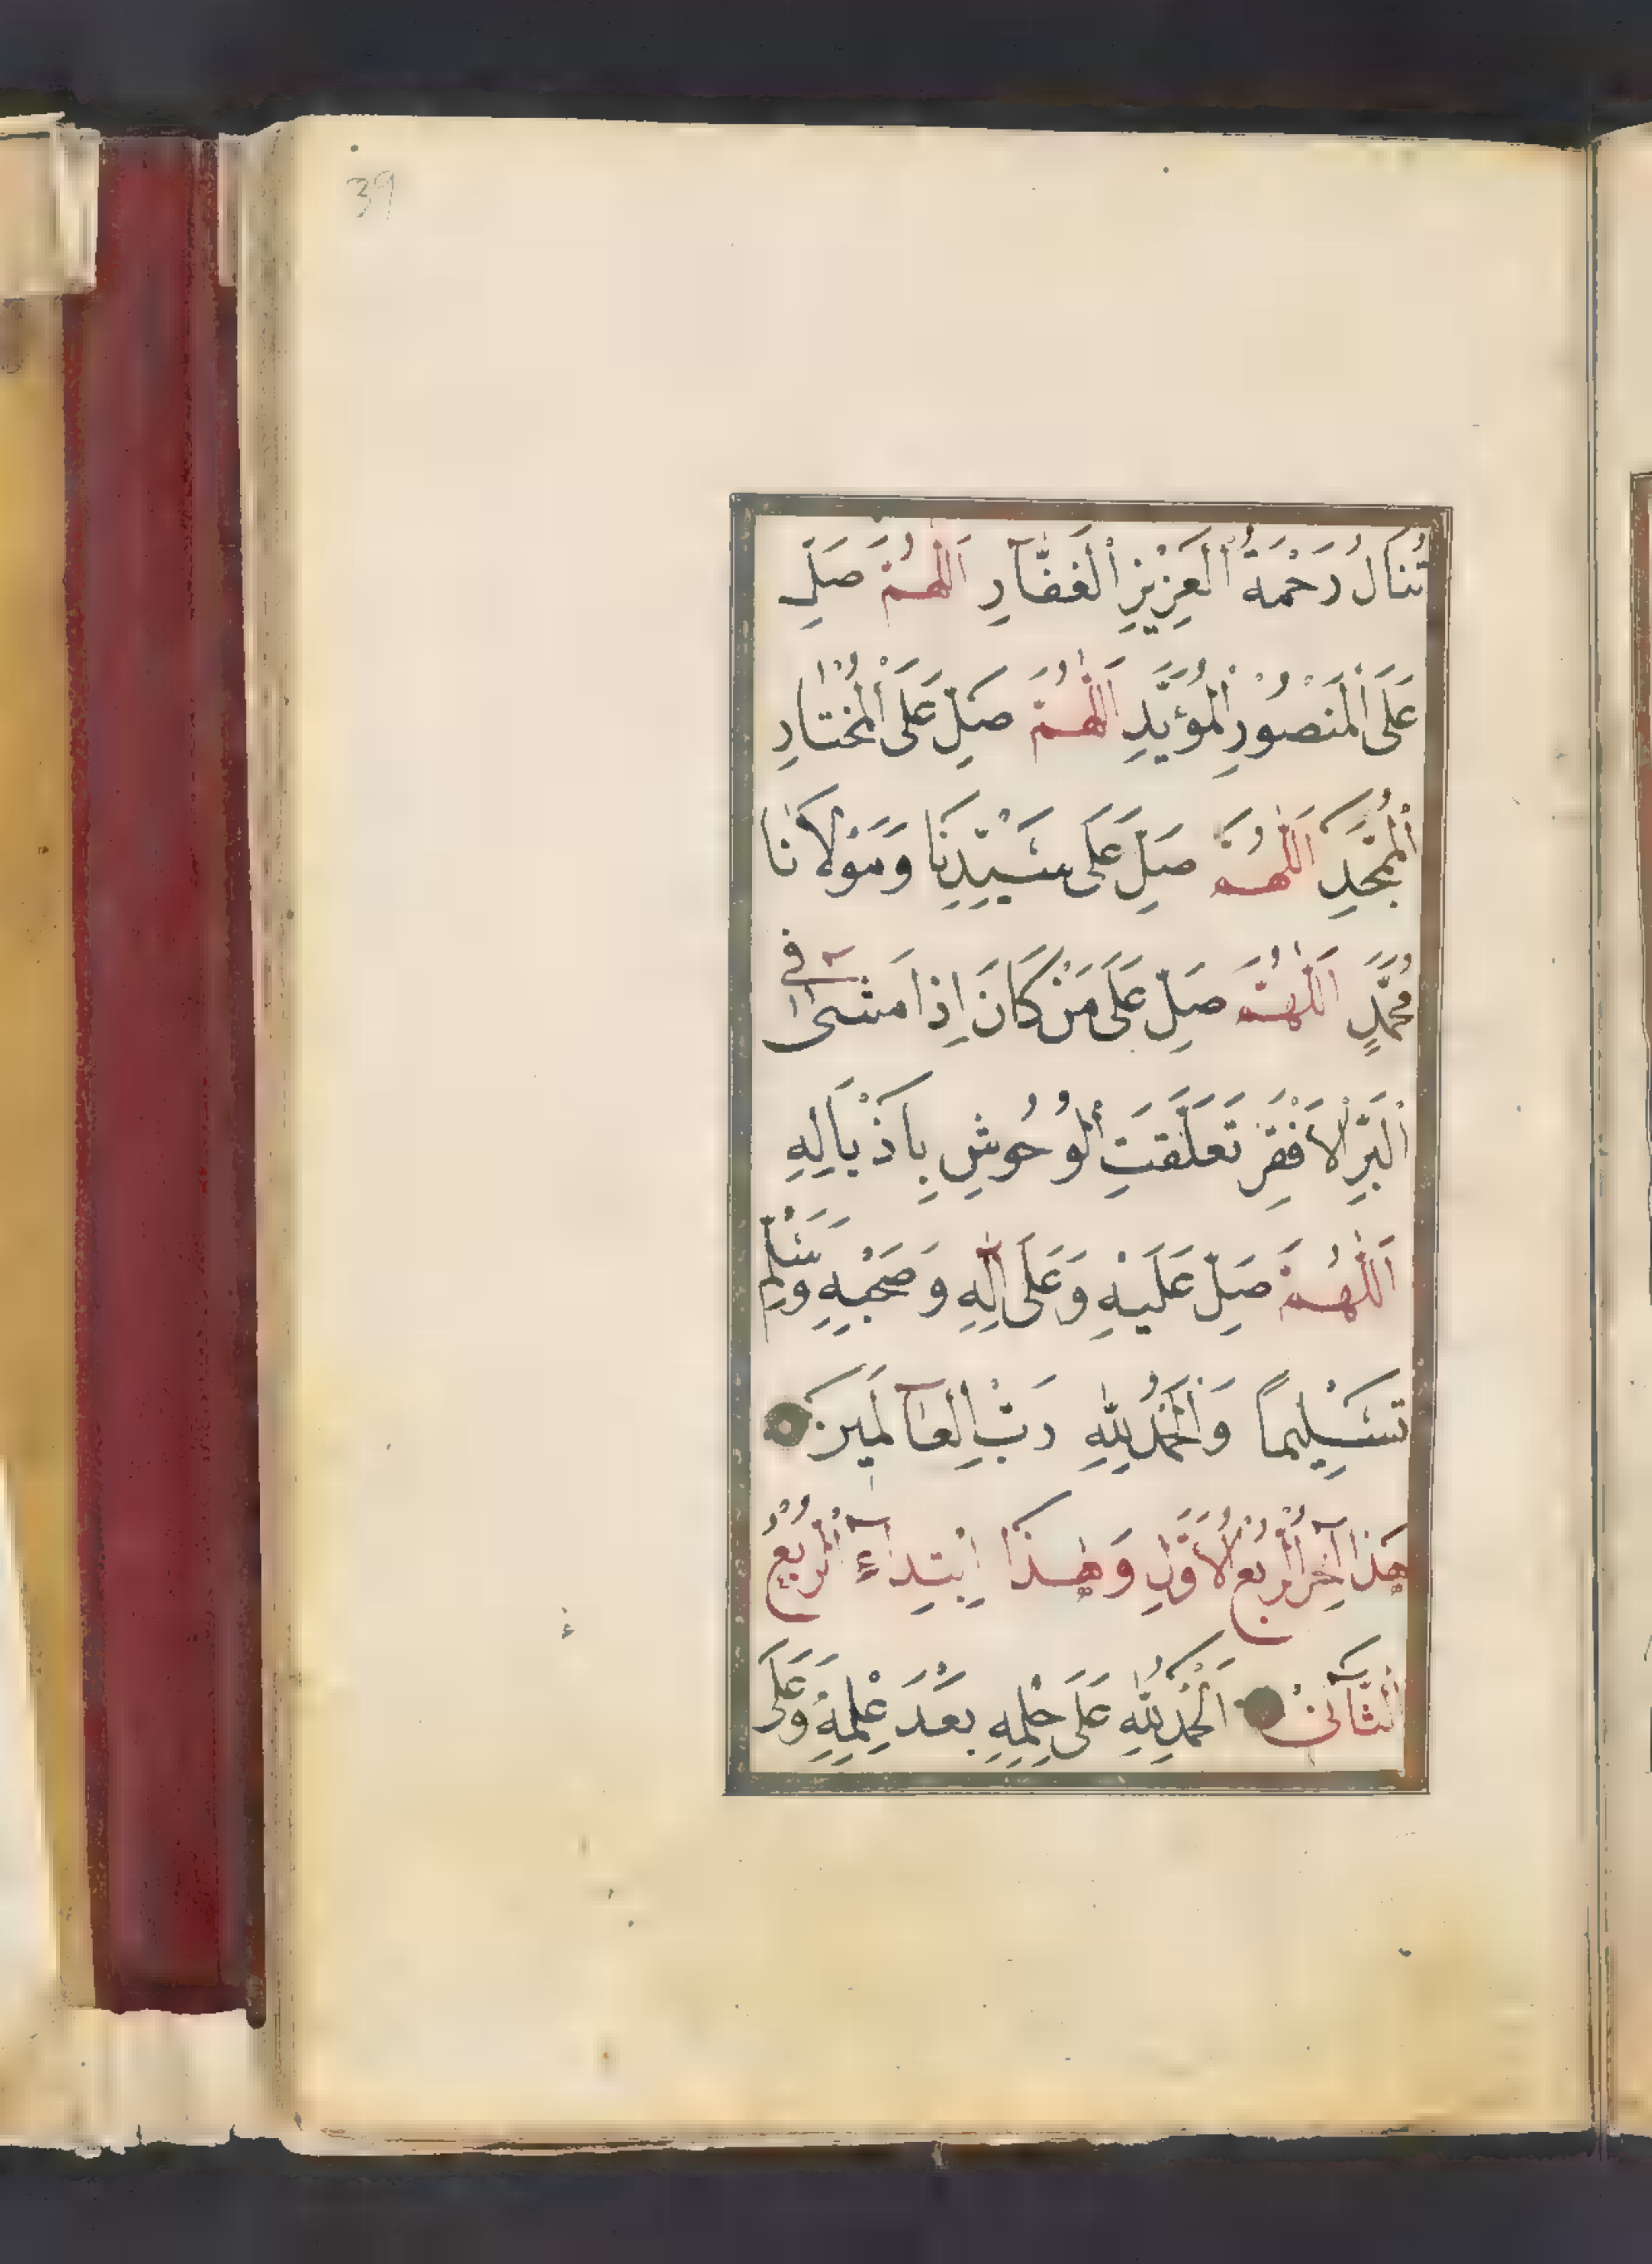 39
تُنَالُ رَحْمَةُ الْعَزِيزِ الْغَفَّارِ اَللّٰهُمَّ صَلِّ
عَلَى الْمَنْصُورِ الْمُؤَيَّدِ اَللّٰهُمَّ صَلِّ عَلَى الْمُخْتَارِ
الْمُمَجَّدِ اَللّٰهُمَّ صَلِّ عَلَى سَيِّدِنَا وَمَوْلَانَا
مُحَمَّدٍ اَللّٰهُمَّ صَلِّ عَلَى مَنْ كَانَ إِذَا مَشَى فِي
الْبَرِّ الْأَقْفَرِ تَعَلَّقَتِ الْوُحُوشِ بِأَذْيَالِهِ
اَللّٰهُمَّ صَلِّ عَلَيْهِ وَعَلَى آلِهِ وَصَحْبِهِ وَسَلِّمْ
تَسْلِيمًا وَالْحَمْدُ لِلّٰهِ رَبِّ الْعَالَمِينَ
هٰذَا آخِرُ الرُّبْعِ الْأَوَّلِ وَهٰذَا اِبْتِدَاءِ الرُّبْعِ
الثَّانِي اَلْحَمْدُ لِلّٰهِ عَلَى حِلْمِهِ بَعْدَ عِلْمِهِ وَعَلَى